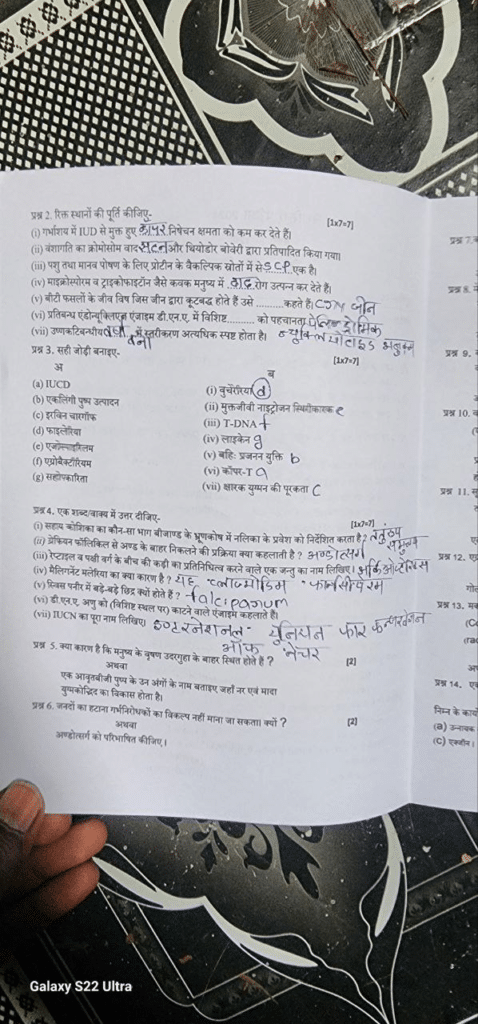 प्रश्न 2. रिक्त स्थानों की पूर्ति कीजिए- [1x7=7]
(i) गर्भाशय में IUD से मुक्त हुए कॉपर निषेचन क्षमता को कम कर देते हैं।
(ii) वंशागति का क्रोमोसोम वाद सटन और थियोडोर बोवेरी द्वारा प्रतिपादित किया गया।
(iii) पशु तथा मानव पोषण के लिए प्रोटीन के वैकल्पिक स्रोतों में से SCP एक है।
(iv) माइक्रोस्पोरम व ट्राइकोफाइटॉन जैसे कवक मनुष्य में दाद रोग उत्पन्न कर देते हैं।
(v) बीटी फसलों के जीव विष जिस जीन द्वारा कूटबद्ध होते हैं उसे .......... कहते हैं। cry जीन
(vi) प्रतिबन्ध एंडोन्यूक्लिएज एंजाइम डी.एन.ए. में विशिष्ट .......... को पहचानता पेलिन्ड्रोमिक
न्युक्लियोटाइड अनुक्रम
(vii) उष्णकटिबन्धीय वर्षा वनो में स्तरीकरण अत्यधिक स्पष्ट होता है।
प्रश्न 3. सही जोड़ी बनाइए- [1x7=7]
अ ब
(a) IUCD (i) वुचेरेरिया d
(b) एकलिंगी पुष्प उत्पादन (ii) मुक्तजीवी नाइट्रोजन स्थिरीकारक e
(c) इरविन चारगॉफ (iii) T-DNA f
(d) फाइलेरिया (iv) लाइकेन g
(e) एजोस्पाइरिलम (v) बहिः प्रजनन युक्ति b
(f) एग्रोबैक्टीरियम (vi) कॉपर-T a
(g) सहोपकारिता (vii) क्षारक युग्मन की पूरकता c
प्रश्न 4. एक शब्द/वाक्य में उत्तर दीजिए- [1x7=7]
(i) सहाय कोशिका का कौन-सा भाग बीजाण्ड के भ्रूणकोष में नलिका के प्रवेश को निर्देशित करता है? तंतुरूप
समुच्चय
(ii) ग्रेफियन फॉलिकिल से अण्ड के बाहर निकलने की प्रक्रिया क्या कहलाती है? अण्डोत्सर्ग
(iii) रेप्टाइल व पक्षी वर्ग के बीच की कड़ी का प्रतिनिधित्व करने वाले एक जन्तु का नाम लिखिए।
(iv) मैलिगनेंट मलेरिया का क्या कारण है? यह प्लाज्मोडियम फाल्सीपेरम
(v) स्विस पनीर में बड़े-बड़े छिद्र क्यों होते हैं? falciparum
(vi) डी.एन.ए. अणु को (विशिष्ट स्थल पर) काटने वाले एंजाइम कहलाते हैं।
(vii) IUCN का पूरा नाम लिखिए। इण्टरनेशनल युनियन फॉर कन्जरवेशन
ऑफ नेचर
प्रश्न 5. क्या कारण है कि मनुष्य के वृषण उदरगुहा के बाहर स्थित होते हैं? [2]
अथवा
एक आवृतबीजी पुष्प के उन अंगों के नाम बताइए जहाँ नर एवं मादा
युग्मकोद्भिद का विकास होता है।
प्रश्न 6. जनदों का हटाना गर्भनिरोधकों का विकल्प नहीं माना जा सकता। क्यों? [2]
अथवा
अण्डोत्सर्ग को परिभाषित कीजिए।
प्रश्न 7.
प्रश्न 8.
प्रश्न 9.
प्रश्न 10.
प्रश्न 11.
प्रश्न 12.
प्रश्न 13.
प्रश्न 14.
निम्न के कार्य
(a) उन्नायक
(c) एक्जॉन।
Galaxy S22 Ultra